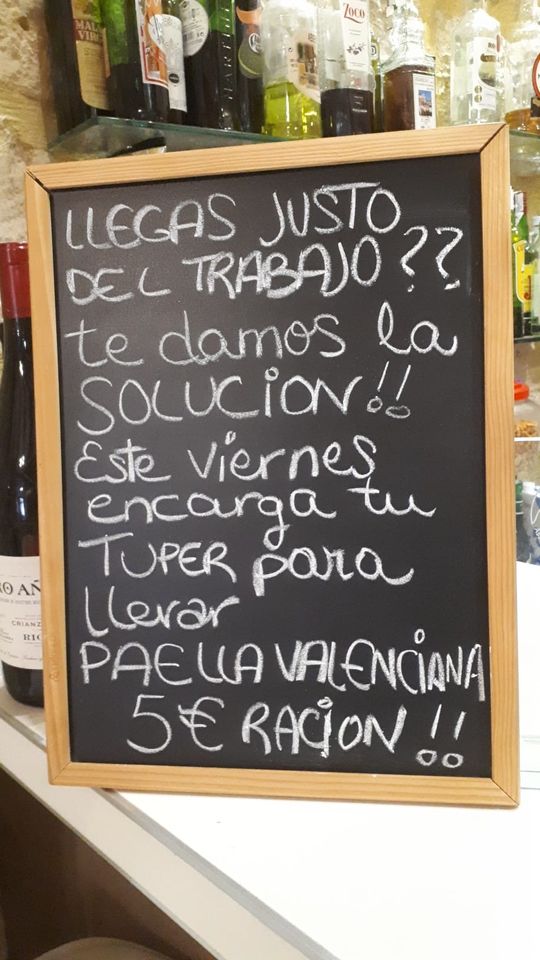 MALA
VIR
MARTI
ZOCO
LLEGAS JUSTO
DEL TRABAJO??
te damos la
SOLUCION!!
Este viernes
encarga tu
TUPER para
llevar
PAELLA VALENCIANA
5€ RACION!!
RO AÑ
CRIANZ
RIO